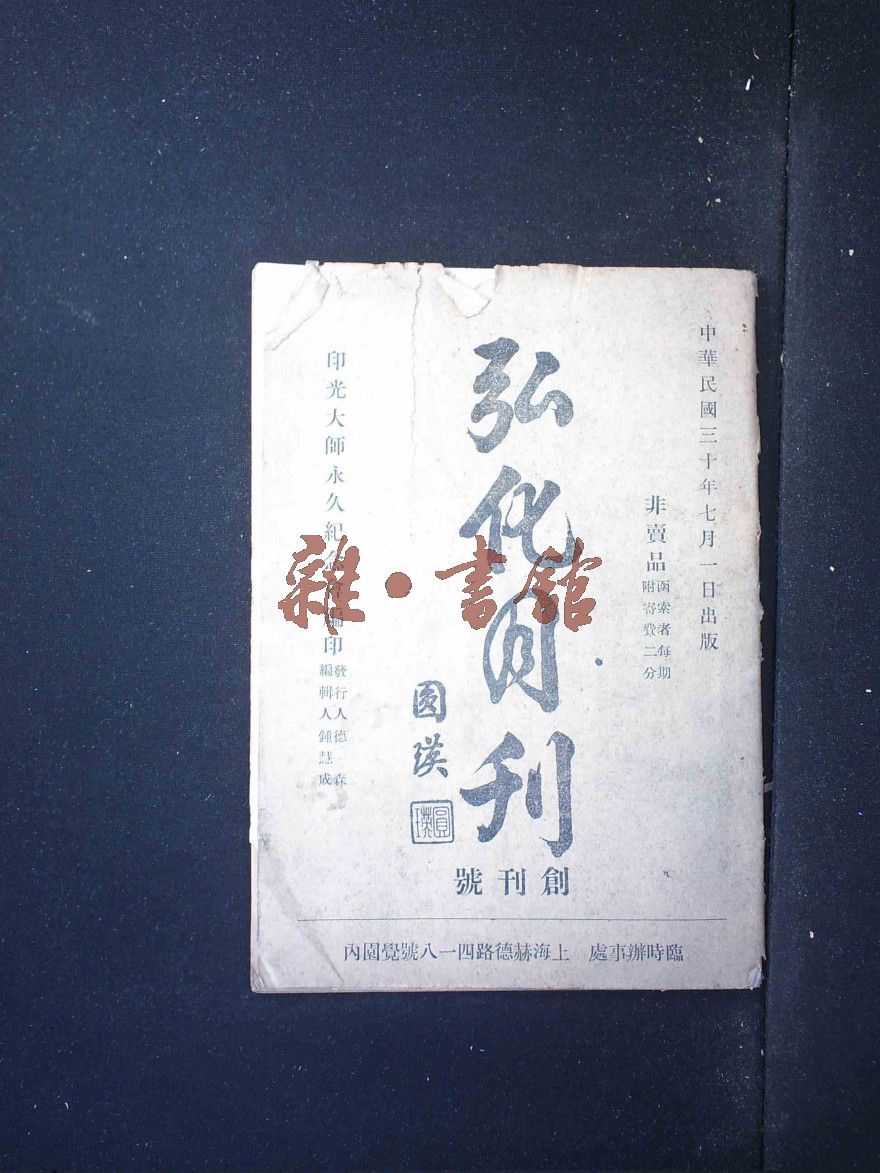 中華民國三十年七月一日出版
非賣品
函索者每期
附寄費二分
弘化月刊
創刊號
圓瑛
圓瑛
印光大師永久紀念會編印
發行人德森
編輯人鍾慧成
臨時辦事處 上海赫德路四一八號覺園內
雜·書館